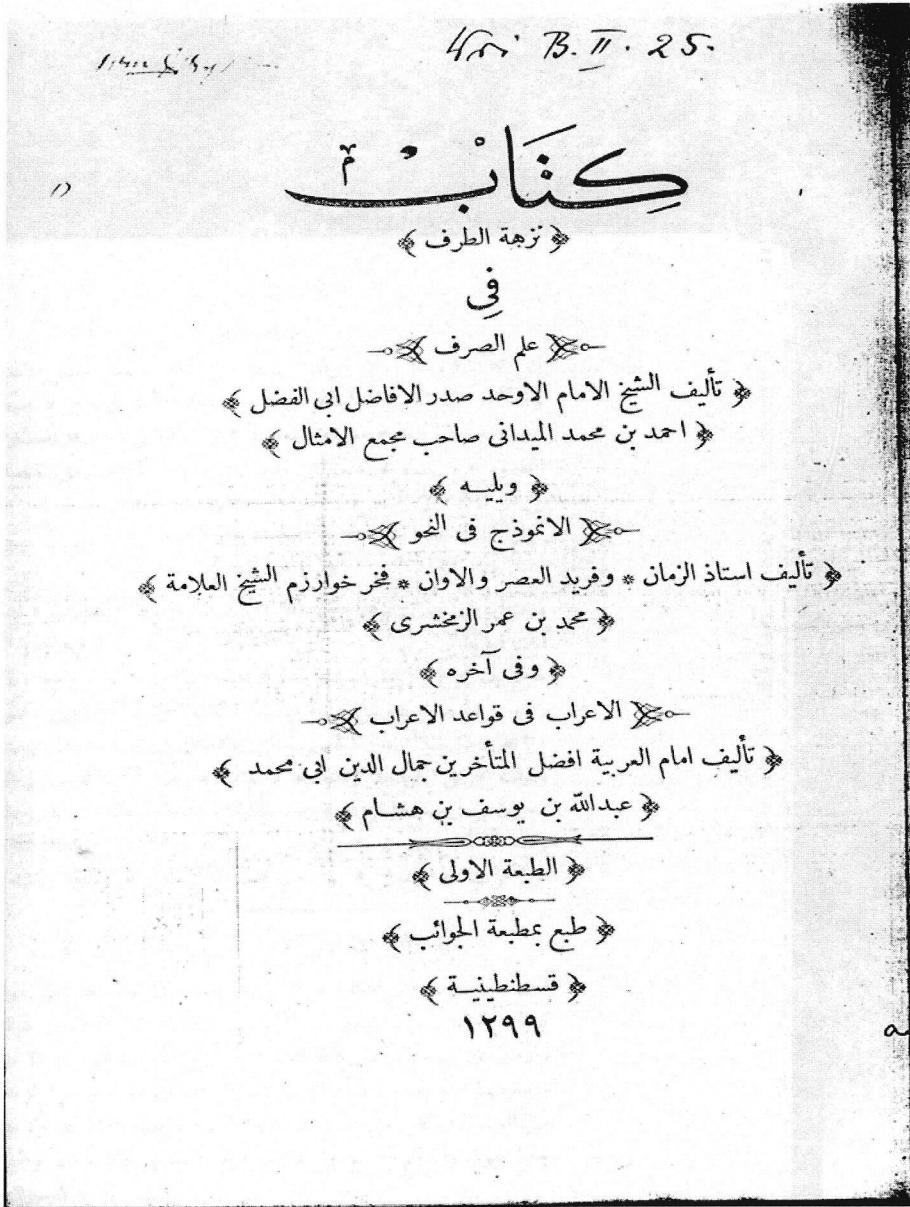 B. II. 25.
كِتَابْ
﴿ نزهة الطرف ﴾
فِى
علم الصرف
﴿ تأليف الشيخ الامام الاوحد صدر الافاضل ابى الفضل ﴾
﴿ احمد بن محمد الميدانى صاحب مجمع الامثال ﴾
﴿ ويليــه ﴾
الانموذج فى النحو
﴿ تأليف استاذ الزمان * وفريد العصر والاوان * فخر خوارزم الشيخ العلامة ﴾
﴿ محمد بن عمر الزمخشرى ﴾
﴿ وفى آخره ﴾
الاعراب فى قواعد الاعراب
﴿ تأليف امام العربية افضل المتأخرين جمال الدين ابى محمد ﴾
﴿ عبدالله بن يوسف بن هشـام ﴾
﴿ الطبعة الاولى ﴾
﴿ طبع بمطبعة الجوائب ﴾
﴿ قسطنطينيــة ﴾
١٢٩٩